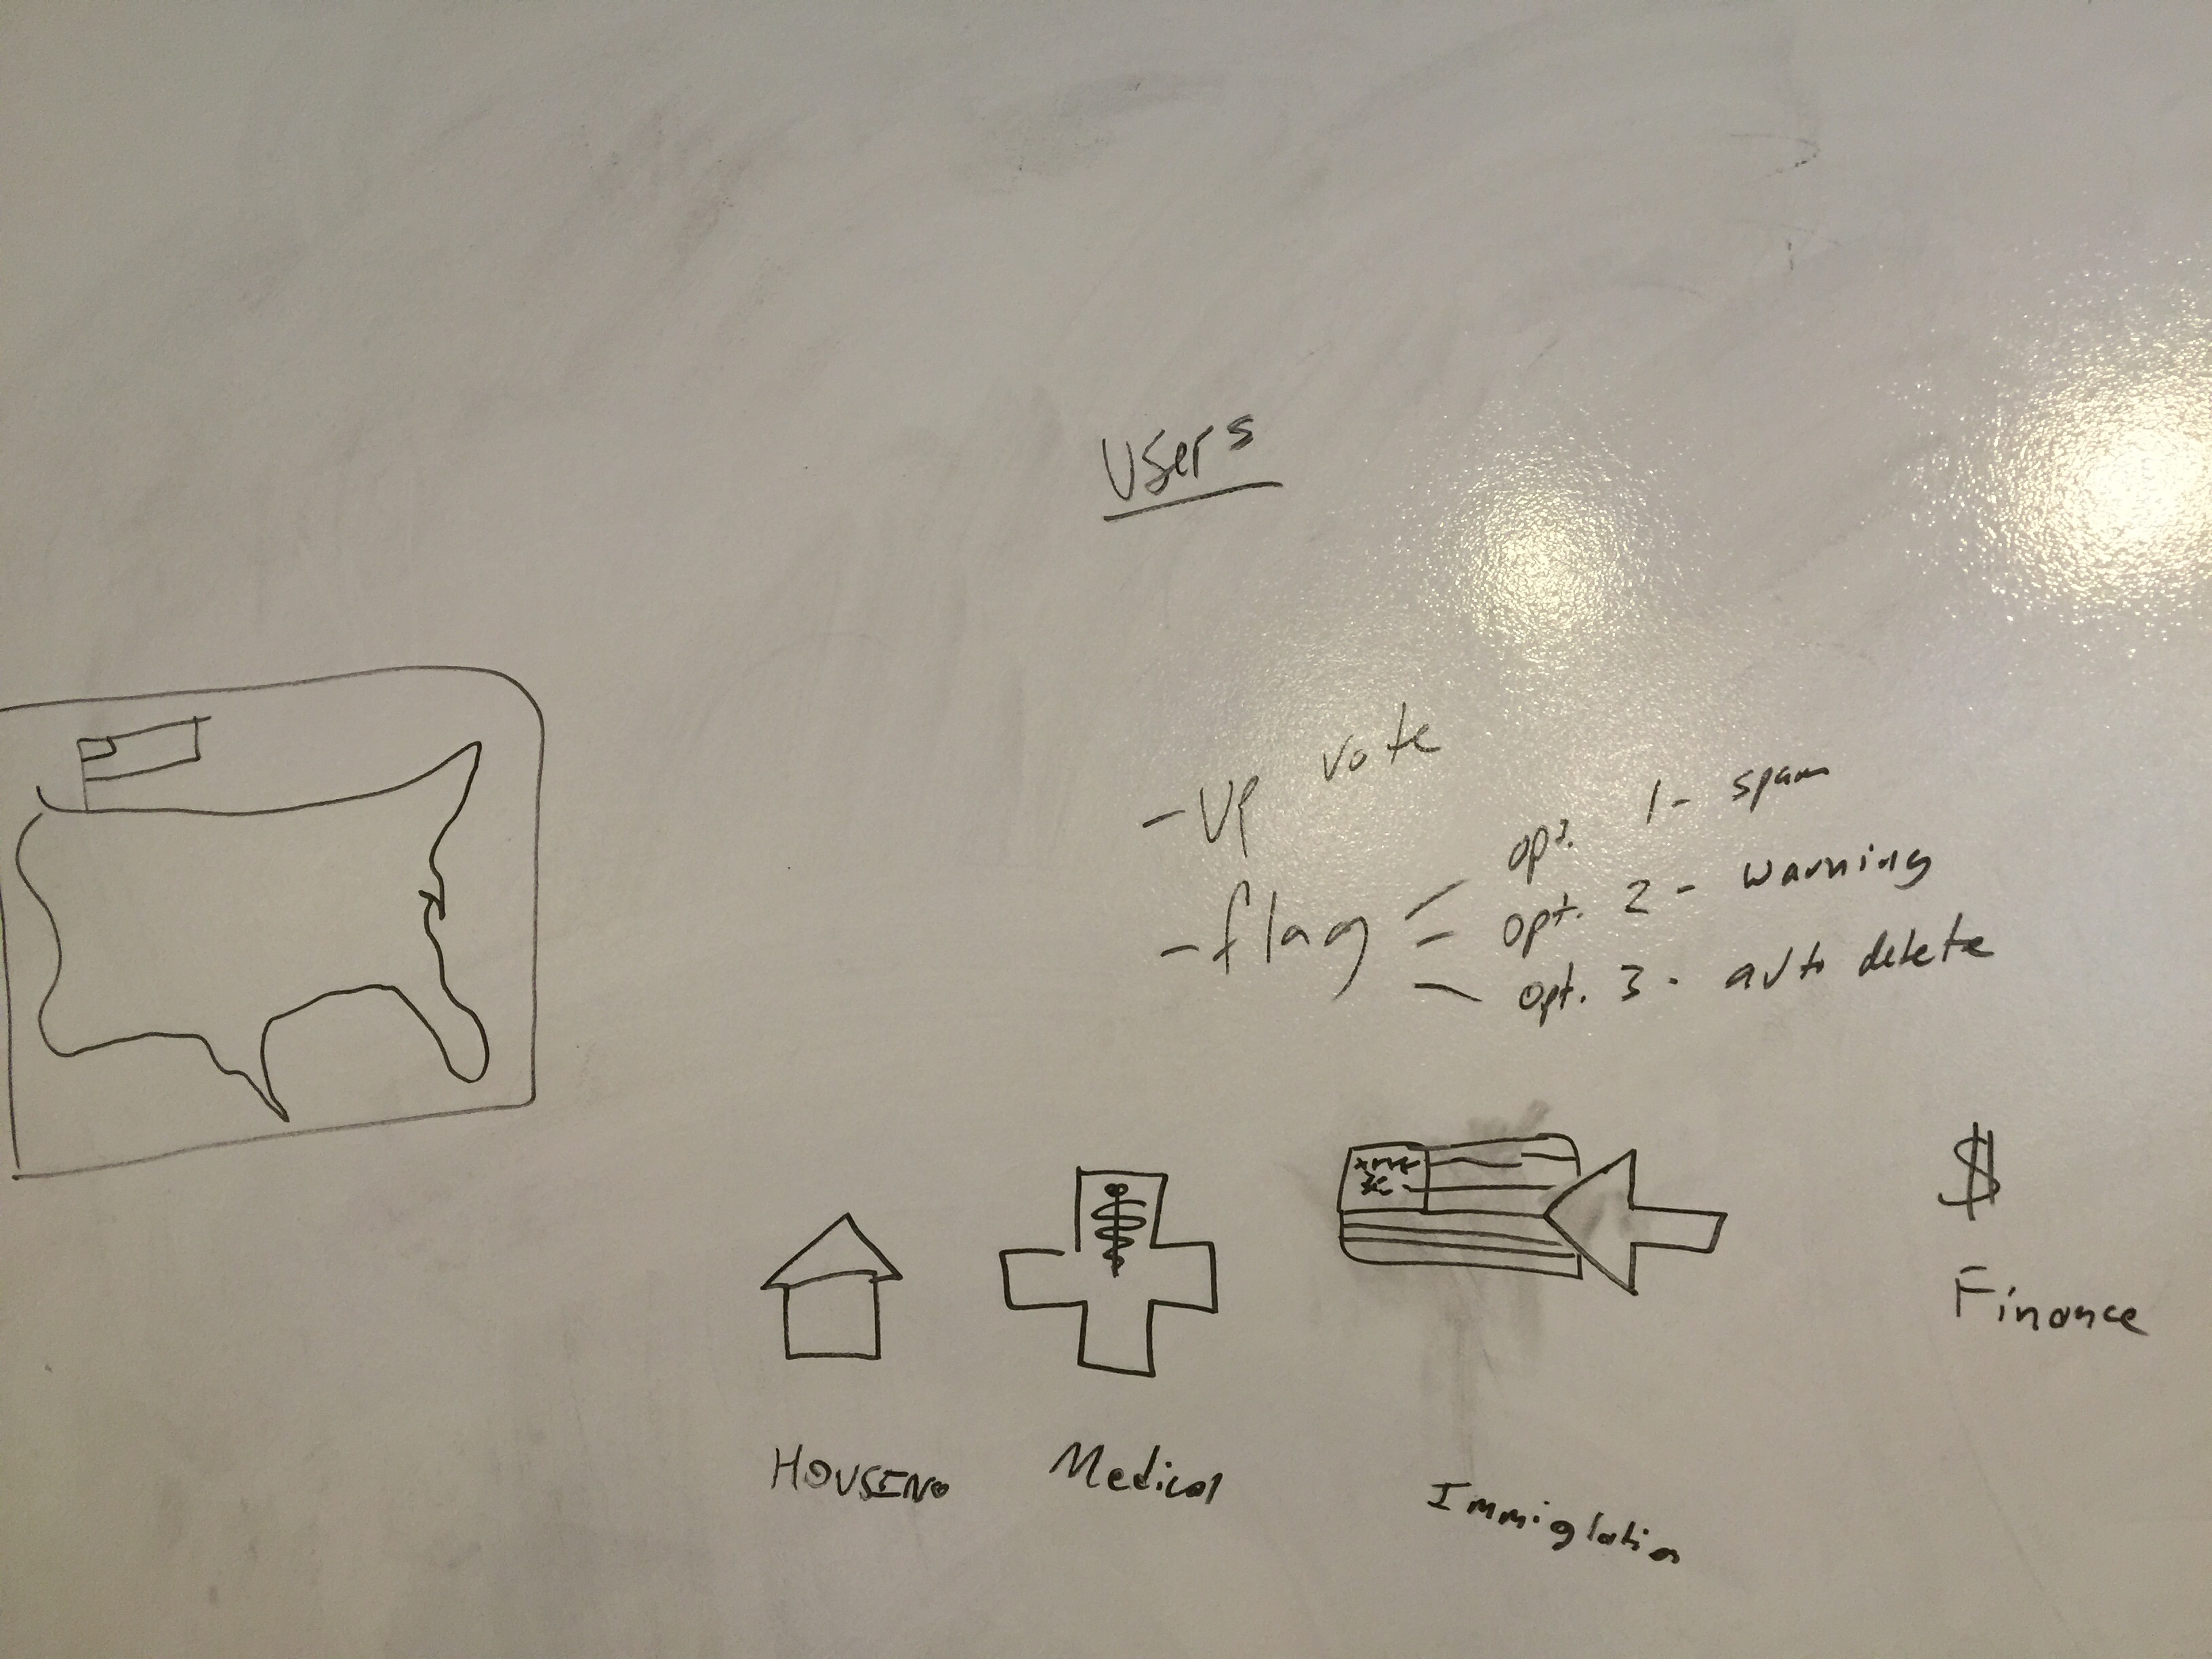 Users
- Up vote
- flag
opt. 1 - spam
opt. 2 - warning
opt. 3 - auto delete
$
Finance
HOUSING
Medical
Immiglation